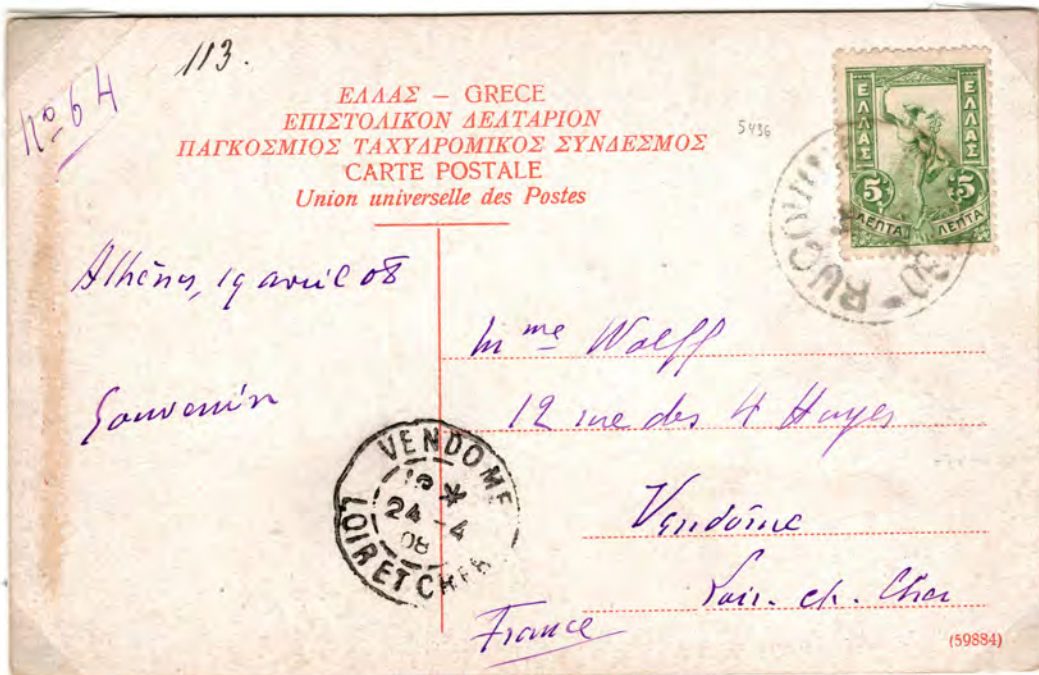 113.
No 64
ΕΛΛΑΣ – GRECE
ΕΠΙΣΤΟΛΙΚΟΝ ΔΕΛΤΑΡΙΟΝ
ΠΑΓΚΟΣΜΙΟΣ ΤΑΧΥΔΡΟΜΙΚΟΣ ΣΥΝΔΕΣΜΟΣ
CARTE POSTALE
Union universelle des Postes
5436
ΕΛΛΑΣ ΕΛΛΑΣ
5 5
ΛΕΠΤΑ ΛΕΠΤΑ
Athènes, 19 avril 08
Souvenir
Mme Wolff
12 rue des 4 Huyes
Vendôme
Loir-et-Cher
France
VENDOME
24 - 4
08
LOIR ET CHER
(59884)